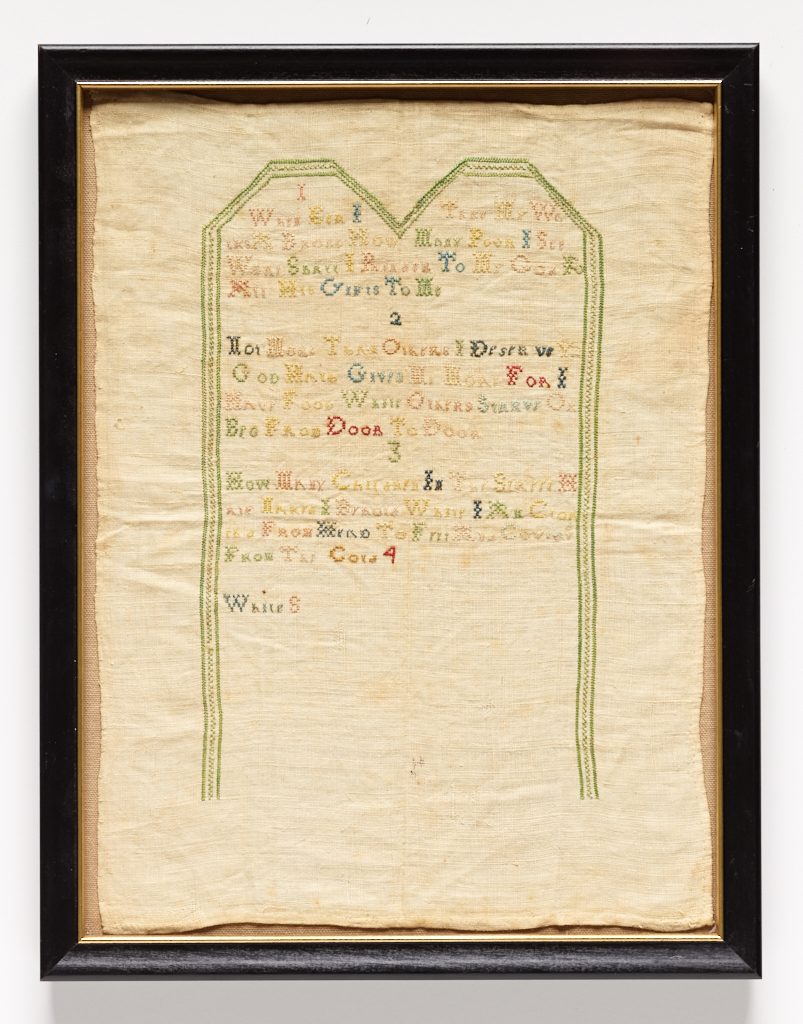 1
When Eer I Take My Wa
lks A Broad How Many Poor I See
What Shall I Render To My God Fo
All His Gifts To Me
2
Not More Than Others I Deserve Ye
God Hath Given Me More For I
Have Food While Others Starve Or
Beg From Door To Door
3
How Many Children In The Street H
alf Naked I Behold While I Am Cloth
ed From Head To Feet And Cover
From The Cold 4
While S